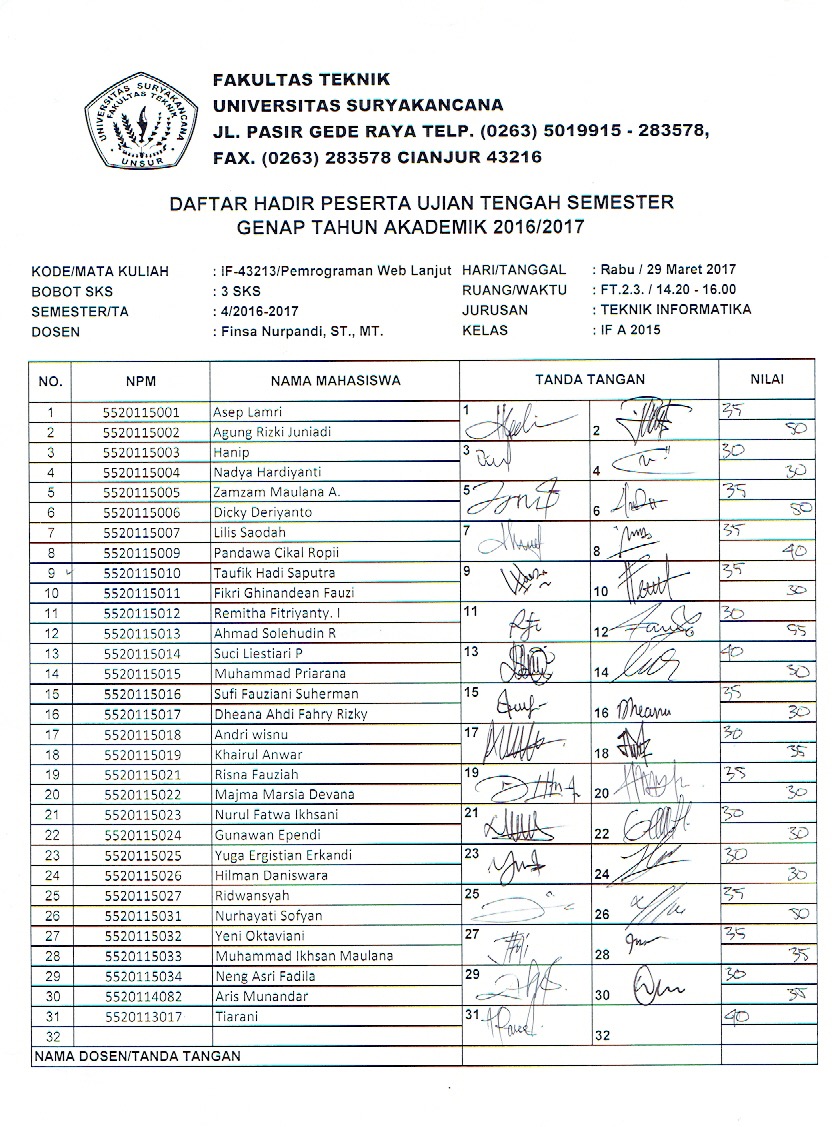 UNIVERSITAS SURYAKANCANA
FAKULTAS TEKNIK
UNSUR
FAKULTAS TEKNIK
UNIVERSITAS SURYAKANCANA
JL. PASIR GEDE RAYA TELP. (0263) 5019915 - 283578,
FAX. (0263) 283578 CIANJUR 43216
DAFTAR HADIR PESERTA UJIAN TENGAH SEMESTER
GENAP TAHUN AKADEMIK 2016/2017
KODE/MATA KULIAH : IF-43213/Pemrograman Web Lanjut HARI/TANGGAL : Rabu / 29 Maret 2017
BOBOT SKS : 3 SKS RUANG/WAKTU : FT.2.3. / 14.20 - 16.00
SEMESTER/TA : 4/2016-2017 JURUSAN : TEKNIK INFORMATIKA
DOSEN : Finsa Nurpandi, ST., MT. KELAS : IF A 2015
NO. NPM NAMA MAHASISWA TANDA TANGAN NILAI
1 5520115001 Asep Lamri 1 35
2 5520115002 Agung Rizki Juniadi 2
3 5520115003 Hanip 3 30
4 5520115004 Nadya Hardiyanti 4 30
5 5520115005 Zamzam Maulana A. 5 35
6 5520115006 Dicky Deriyanto 6
7 5520115007 Lilis Saodah 7 35
8 5520115009 Pandawa Cikal Ropii 8 40
9 5520115010 Taufik Hadi Saputra 9 35
10 5520115011 Fikri Ghinandean Fauzi 10 30
11 5520115012 Remitha Fitriyanty. I 11 30
12 5520115013 Ahmad Solehudin R 12
13 5520115014 Suci Liestiari P 13 40
14 5520115015 Muhammad Priarana 14
15 5520115016 Sufi Fauziani Suherman 15 35
16 5520115017 Dheana Ahdi Fahry Rizky 16 Dheana 30
17 5520115018 Andri wisnu 17 30
18 5520115019 Khairul Anwar 18 35
19 5520115021 Risna Fauziah 19 35
20 5520115022 Majma Marsia Devana 20 30
21 5520115023 Nurul Fatwa Ikhsani 21 30
22 5520115024 Gunawan Ependi 22 30
23 5520115025 Yuga Ergistian Erkandi 23 30
24 5520115026 Hilman Daniswara 24 30
25 5520115027 Ridwansyah 25 35
26 5520115031 Nurhayati Sofyan 26
27 5520115032 Yeni Oktaviani 27 35
28 5520115033 Muhammad Ikhsan Maulana 28 35
29 5520115034 Neng Asri Fadila 29 30
30 5520114082 Aris Munandar 30 35
31 5520113017 Tiarani 31 40
32 32
NAMA DOSEN/TANDA TANGAN